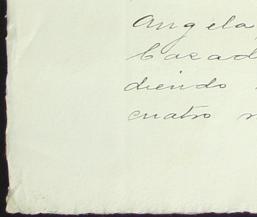 Angela
Casad
diendo
cuatro